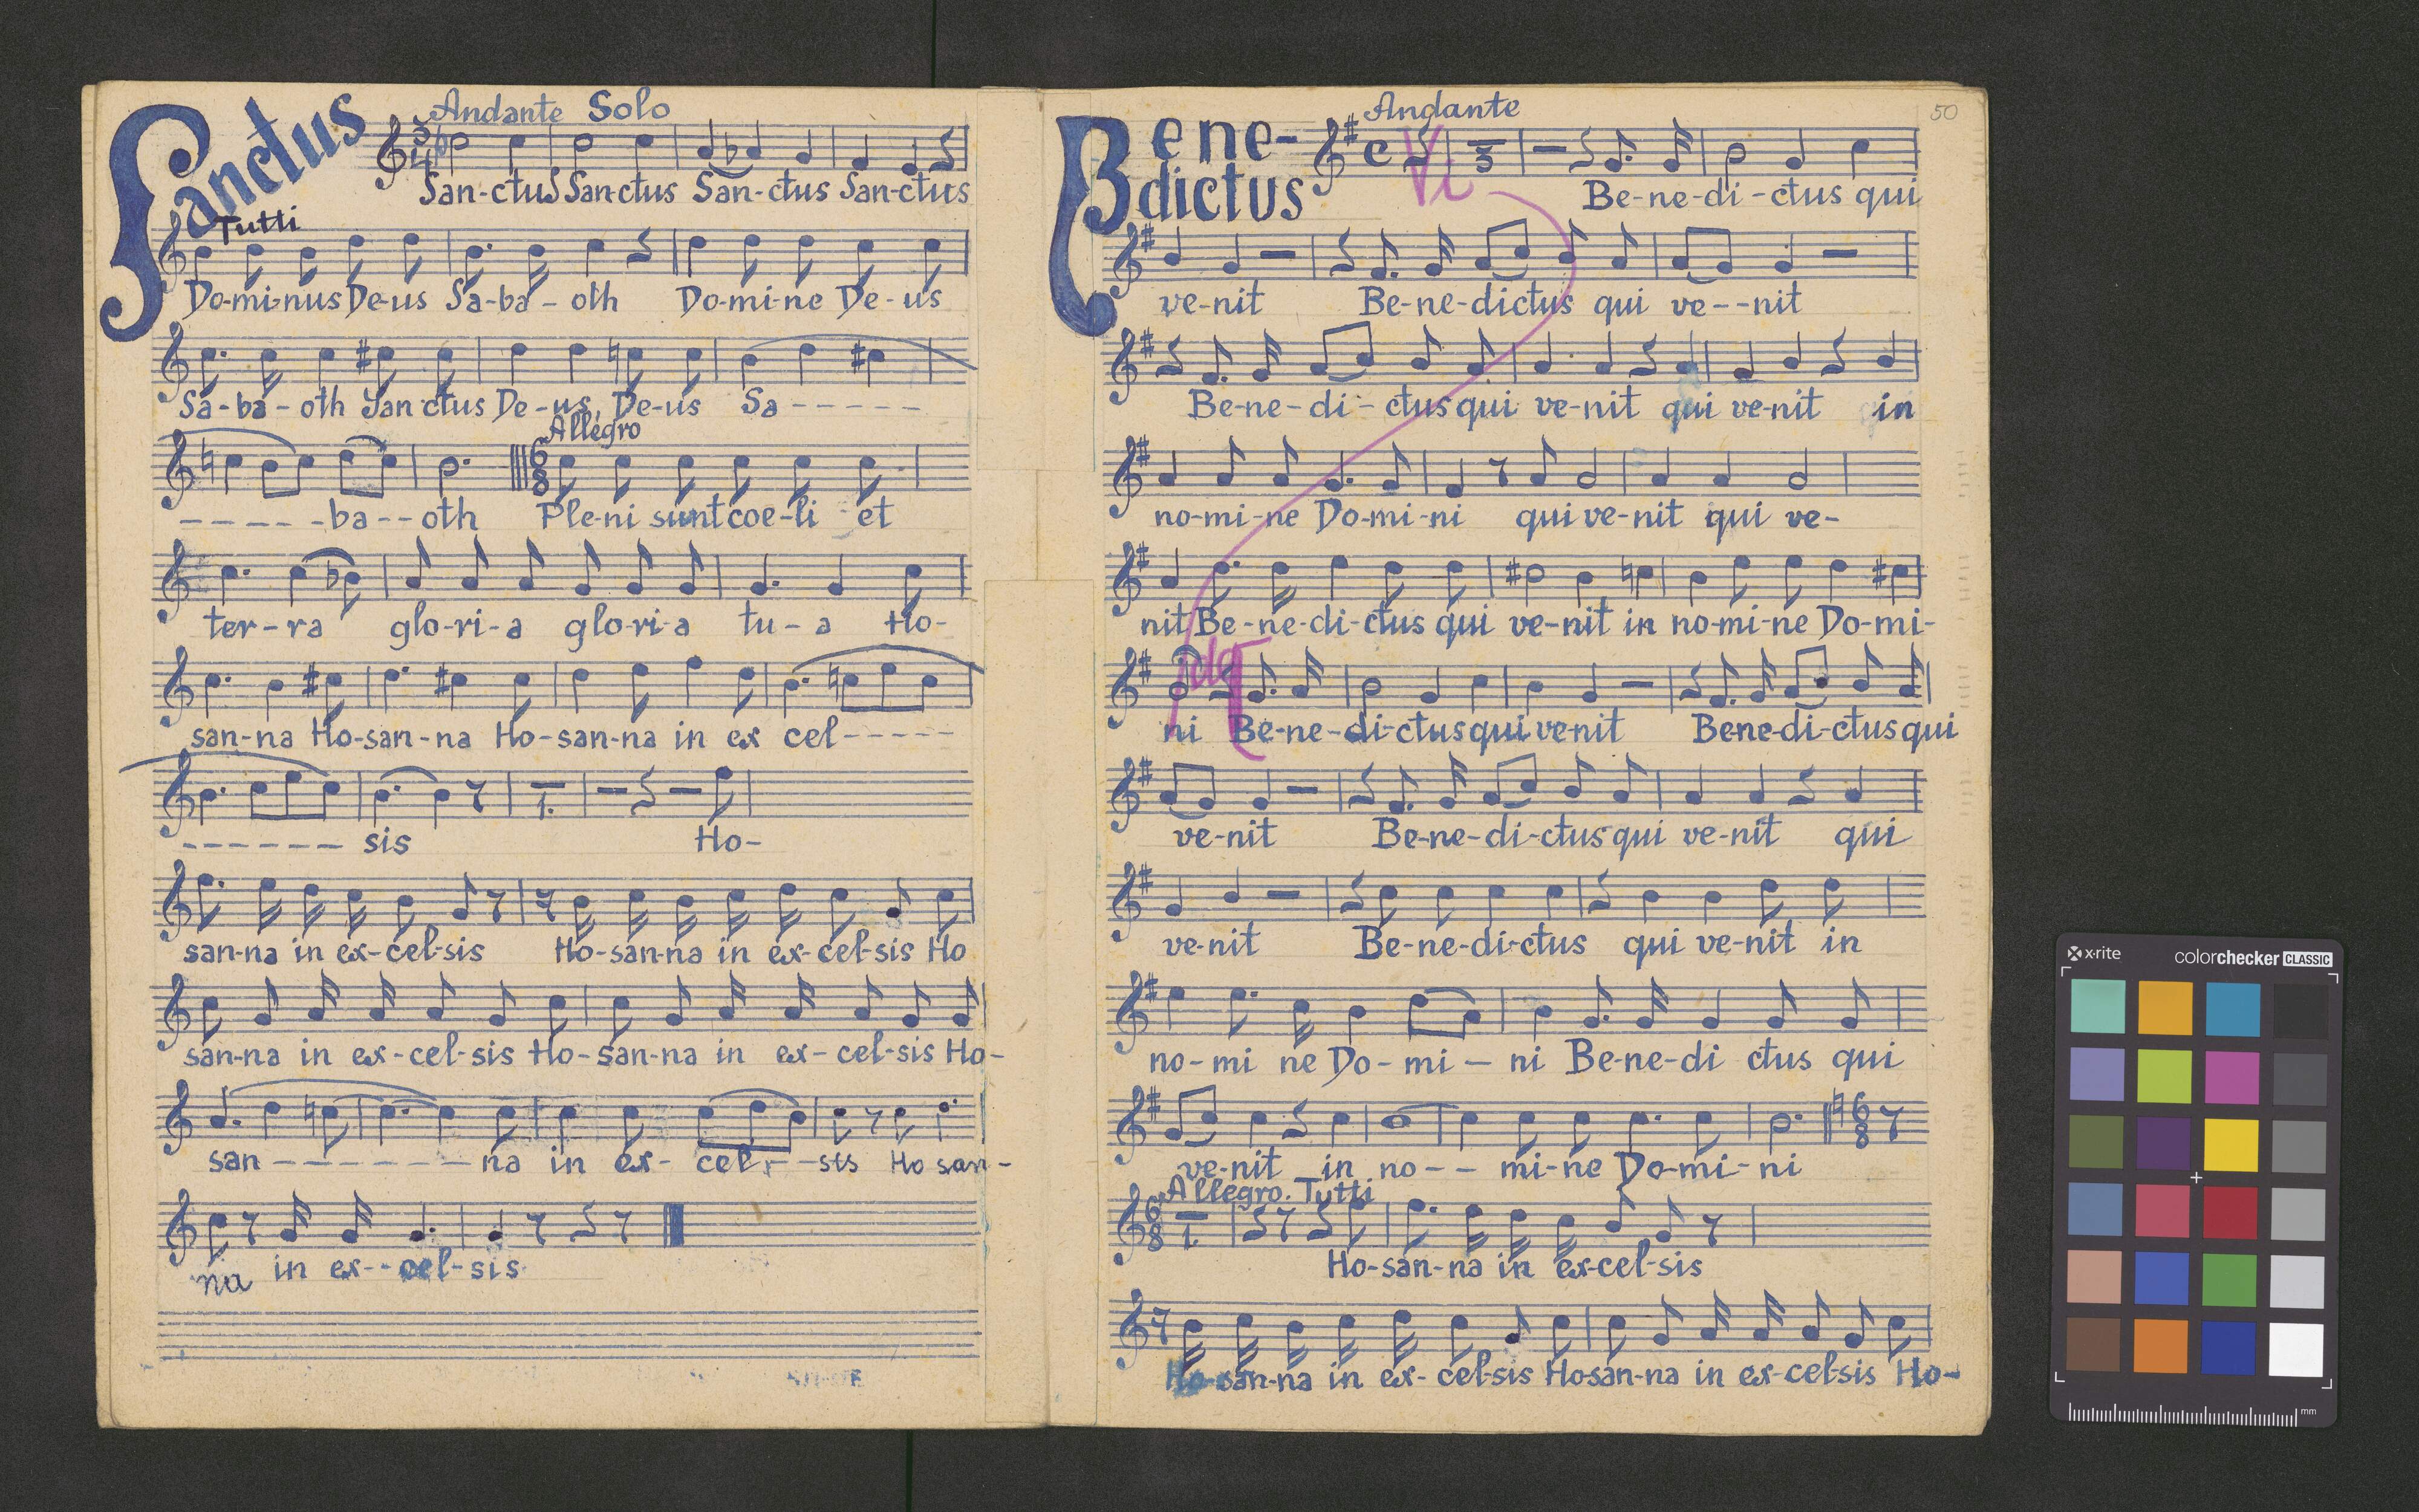 Sanctus
Andante Solo
San-ctus San-ctus San-ctus San-ctus
Tutti
Do-mi-nus De-us Sa-ba-oth Do-mi-ne De-us
Sa-ba-oth San-ctus De-us, De-us Sa-----
-----ba--oth
Allegro
Ple-ni sunt coe-li et
ter-ra glo-ri-a glo-ri-a tu-a Ho-
san-na Ho-san-na Ho-san-na in ex cel-----
------ sis Ho-
san-na in ex-cel-sis Ho-san-na in ex-cel-sis Ho
san-na in ex-cel-sis Ho-san-na in ex-cel-sis Ho-
san------na in ex-cel--sis Ho san-
na in ex--cel-sis
50
Bene-
dictus
Andante
Vi
Be-ne-di-ctus qui
ve-nit Be-ne-dictus qui ve--nit
Be-ne-di-ctus qui ve-nit qui ve-nit in
no-mi-ne Do-mi-ni qui ve-nit qui ve-
nit Be-ne-di-ctus qui ve-nit in no-mi-ne Do-mi-
ni Be-ne-di-ctus qui ve-nit Bene-di-ctus qui
ve-nit Be-ne-di-ctus qui ve-nit qui
ve-nit Be-ne-di-ctus qui ve-nit in
no-mi ne Do-mi-ni Be-ne-di ctus qui
ve-nit in no-- mi-ne Do-mi-ni
Allegro. Tutti
Ho-san-na in ex-cel-sis
Ho-san-na in ex-cel-sis Ho-san-na in ex-cel-sis Ho-
x-rite colorchecker CLASSIC
mm